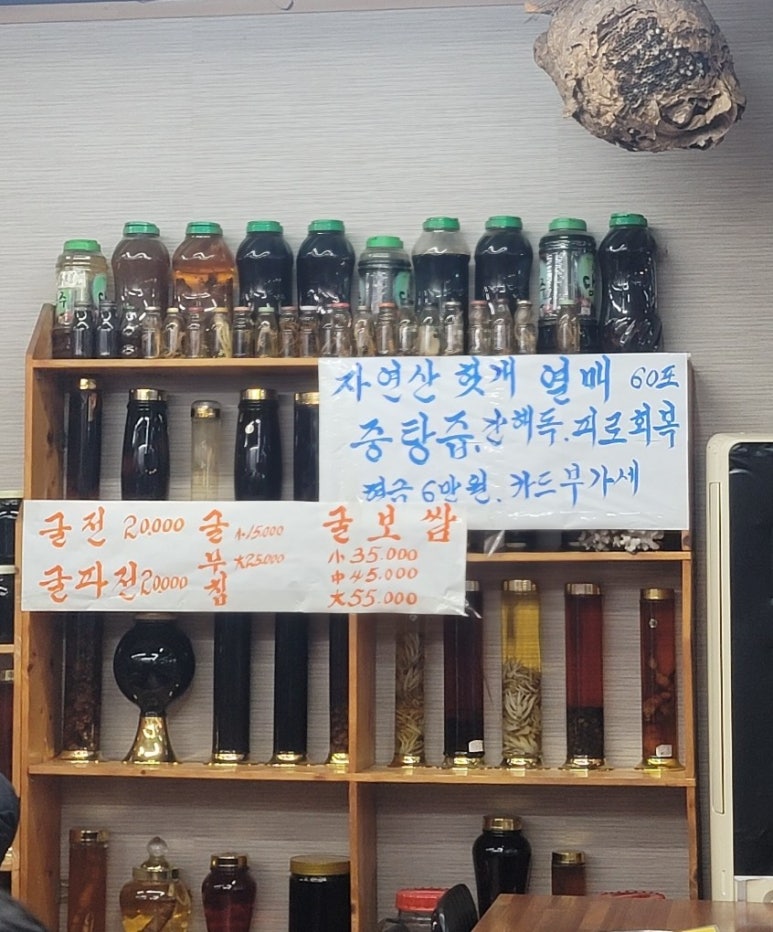 자연산 헛개 열매 60포
중탕즙, 간해독.피로회복
현금 6만원. 카드부가세
굴전 20.000
굴파전 20.000
굴부침
小 15.000
大 25.000
굴보쌈
小 35.000
中 45.000
大 55.000